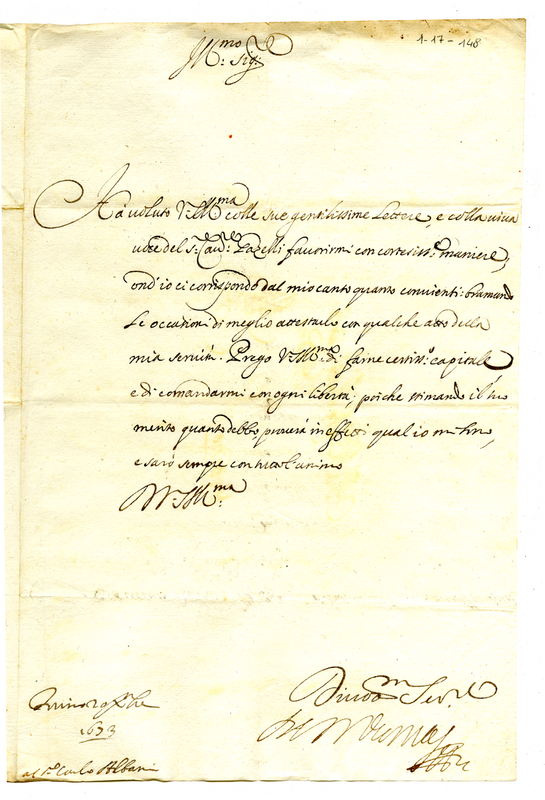 1-17-148
Ill.mo Sig.re
Ha voluto V.S. Ill.ma colle sue gentilissime Lettere, e colla viva
voce del S.r Cav.re favorirmi con cortesiss.e maniere,
ond'io ci corrispondo dal mio canto quanto convienti: bramando
le occasioni di meglio attestarlo con qualche atto della
mia servitù. Prego V.S. Ill.ma di farne certiss.o capitale
e di comandarmi con ogni libertà; poiche stimando il suo
merito quanto debbo, proverà in effetti qual io
e sarò sempre con tutto l'animo
Di V.S. Ill.ma
1673
al S.r Carlo Albani
Divotiss.mo Ser.re